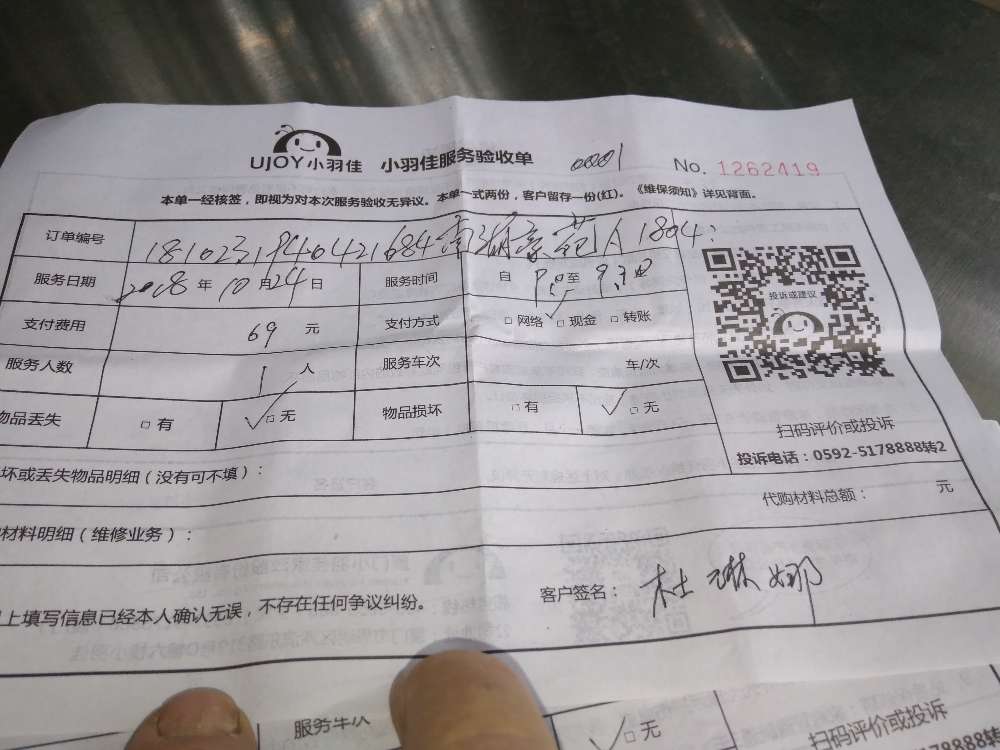 UJOY小羽佳 小羽佳服务验收单 0001 No. 1262419
本单一经核签，即视为对本次服务验收无异议。本单一式两份，客户留存一份(红)。《维保须知》详见背面。
订单编号 18102319440421684 南湖豪苑 A1804
服务日期 2018年10月24日 服务时间 自 9:0 至 9:30
支付费用 69 元 支付方式 □网络 ✓□现金 □转账
服务人数 1 人 服务车次 车/次
物品丢失 □有 ✓□无 物品损坏 □有 ✓□无
投诉或建议
扫码评价或投诉
投诉电话：0592-5178888转2
坏或丢失物品明细（没有可不填）：
代购材料总额： 元
材料明细（维修业务）：
上填写信息已经本人确认无误，不存在任何争议纠纷。 客户签名： 杜琳娜
服务车次 ✓□无 扫码评价或投诉
78888转2